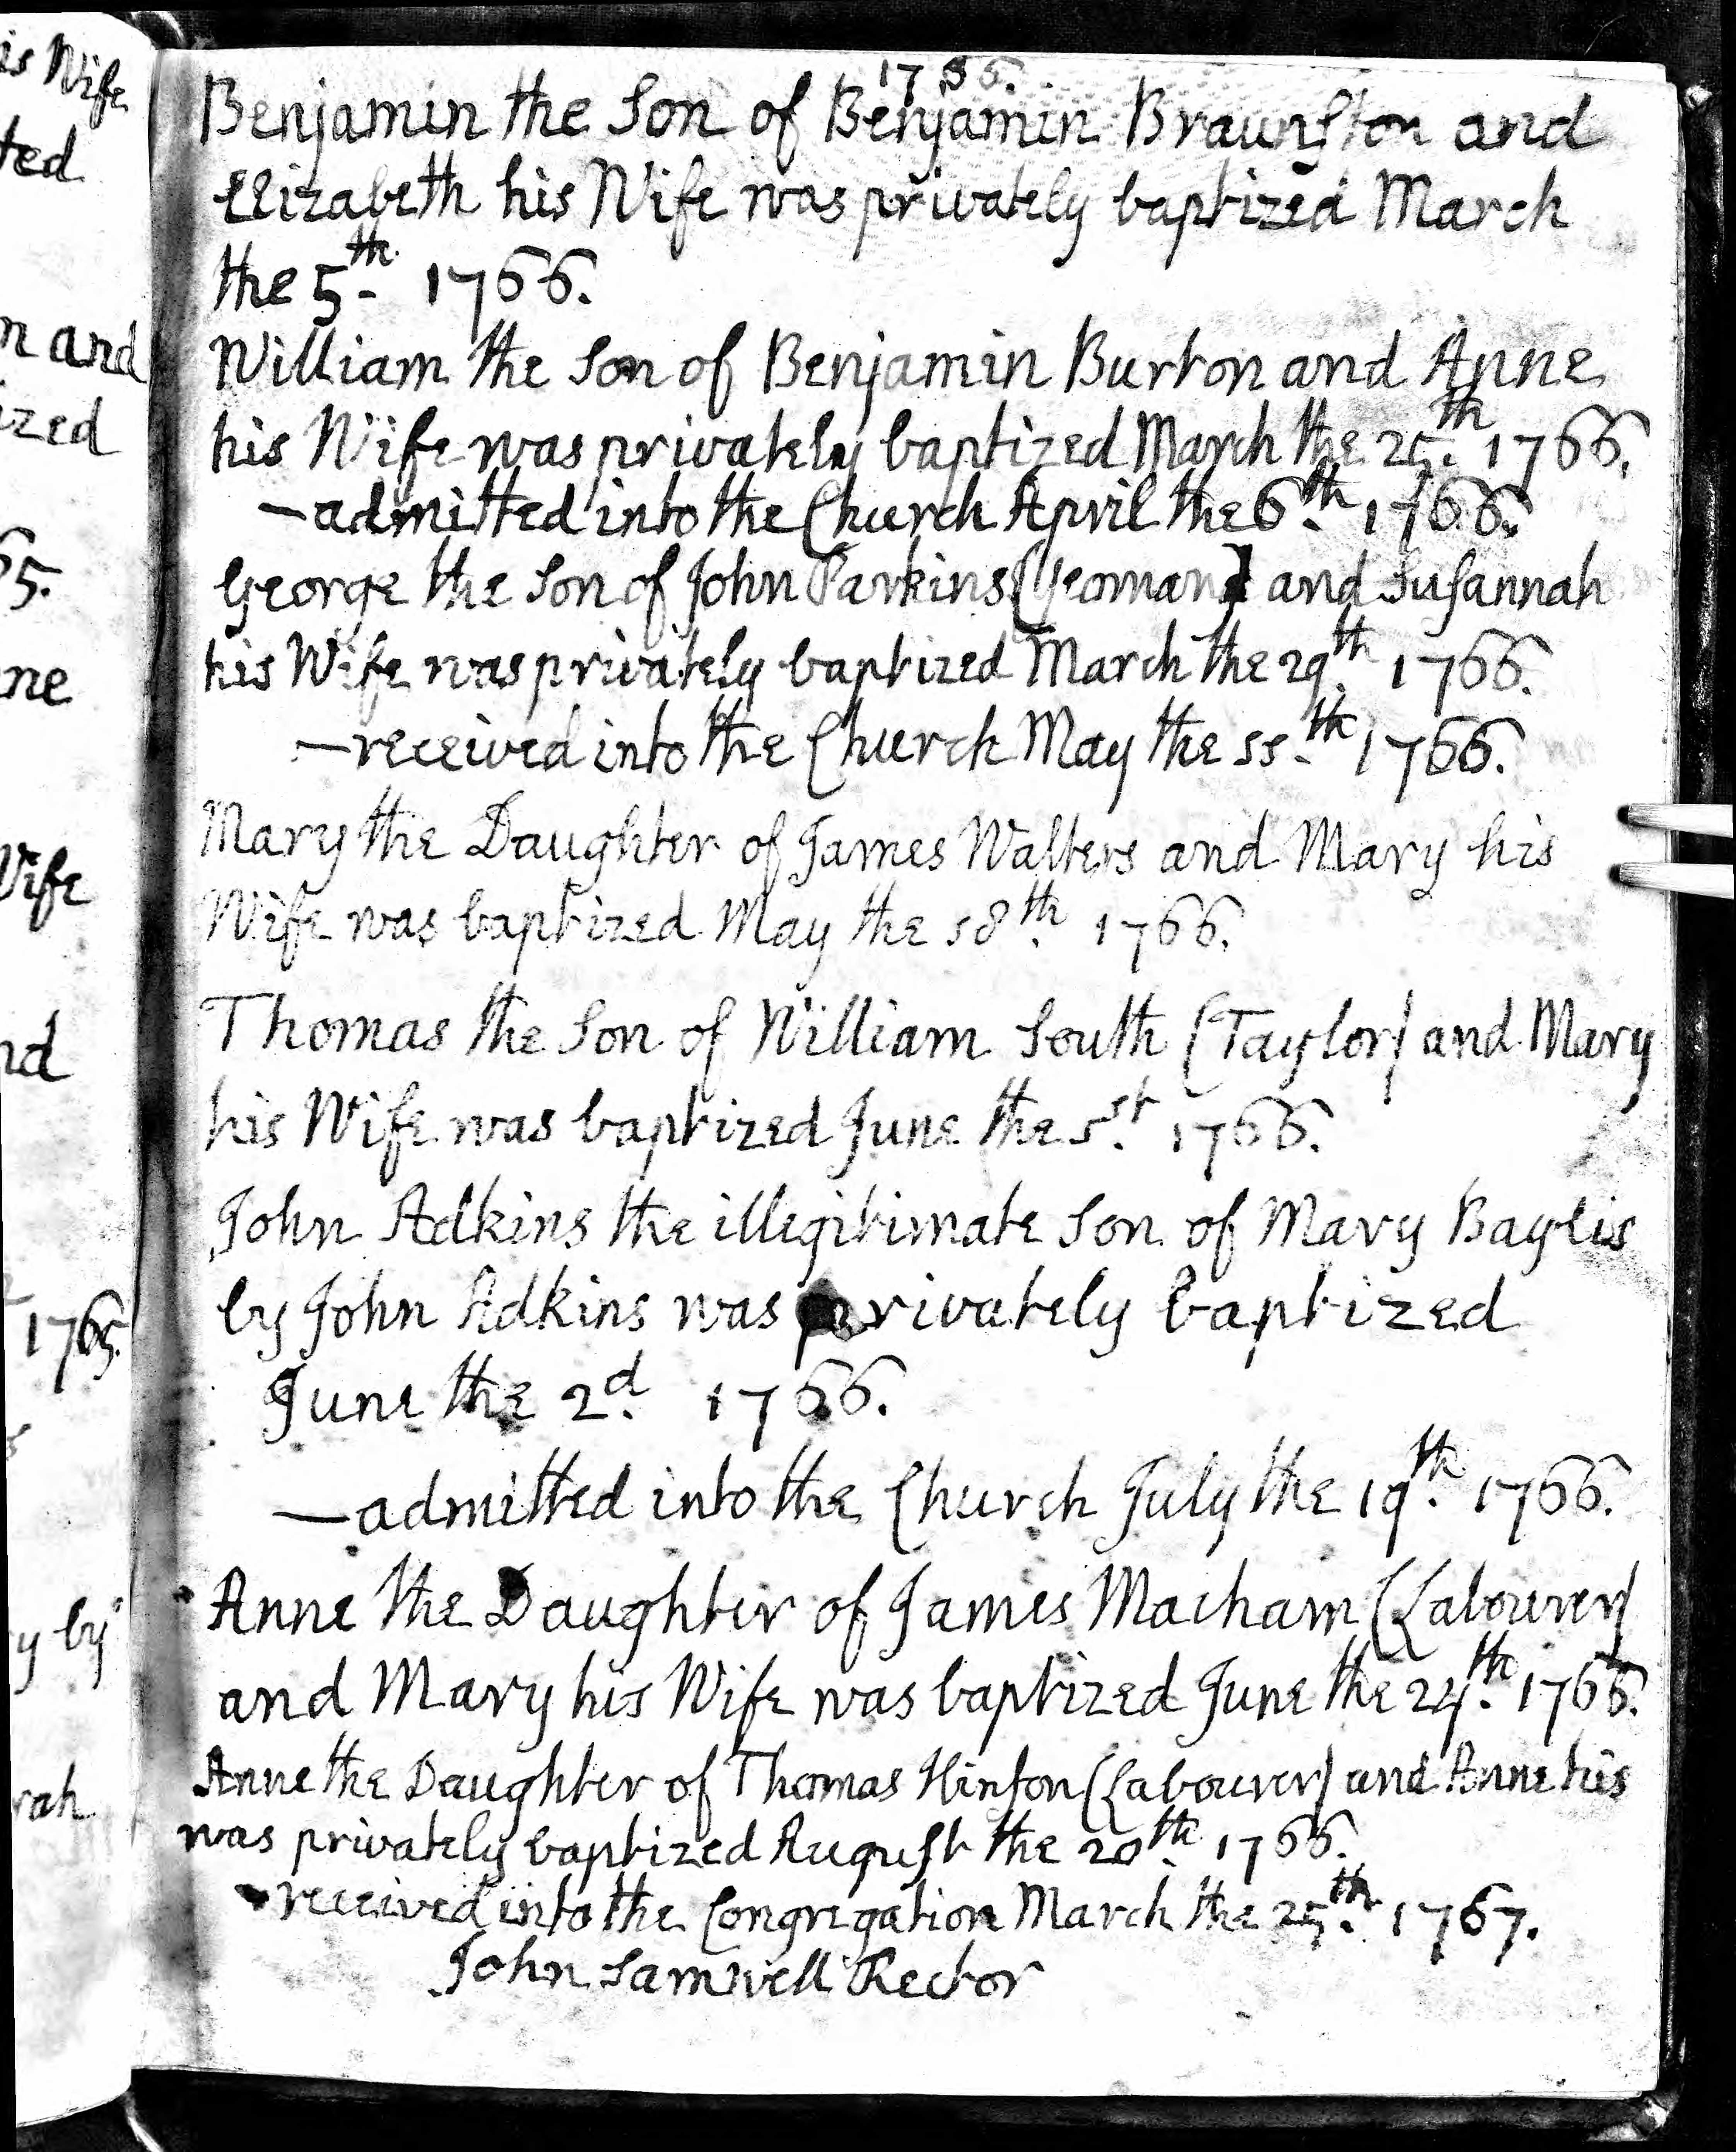 is Wife
ted
n and
ized
65.
ne
Wife
nd
1765.
y by
rah
1766.
Benjamin the Son of Benjamin Braunston and
Elizabeth his Wife was privately baptized March
the 5th. 1766.
William the Son of Benjamin Burton and Anne
his Wife was privately baptized March the 25th. 1766.
—admitted into the Church April the 6th. 1766.
George the Son of John Parkins (Yeoman) and Susannah
his Wife was privately baptized March the 29th. 1766.
—received into the Church May the 11th. 1766.
Mary the Daughter of James Walters and Mary his
Wife was baptized May the 18th. 1766.
Thomas the Son of William South (Taylor) and Mary
his Wife was baptized June the 1st. 1766.
John Adkins the illegitimate Son of Mary Baylis
by John Adkins was privately baptized
June the 2d. 1766.
—admitted into the Church July the 19th. 1766.
Anne the Daughter of James Macham (Labourer)
and Mary his Wife was baptized June the 24th. 1766.
Anne the Daughter of Thomas Hinton (Labourer) and Anne his
was privately baptized August the 20th. 1766.
-received into the Congregation March the 25th. 1767.
John Samwell Rector